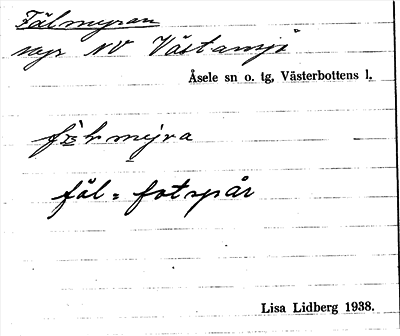 Fälmyran
myr NV Västansjö
Åsele sn o. tg, Västerbottens l.
myra
fäl = fotspår
Lisa Lidberg 1938.